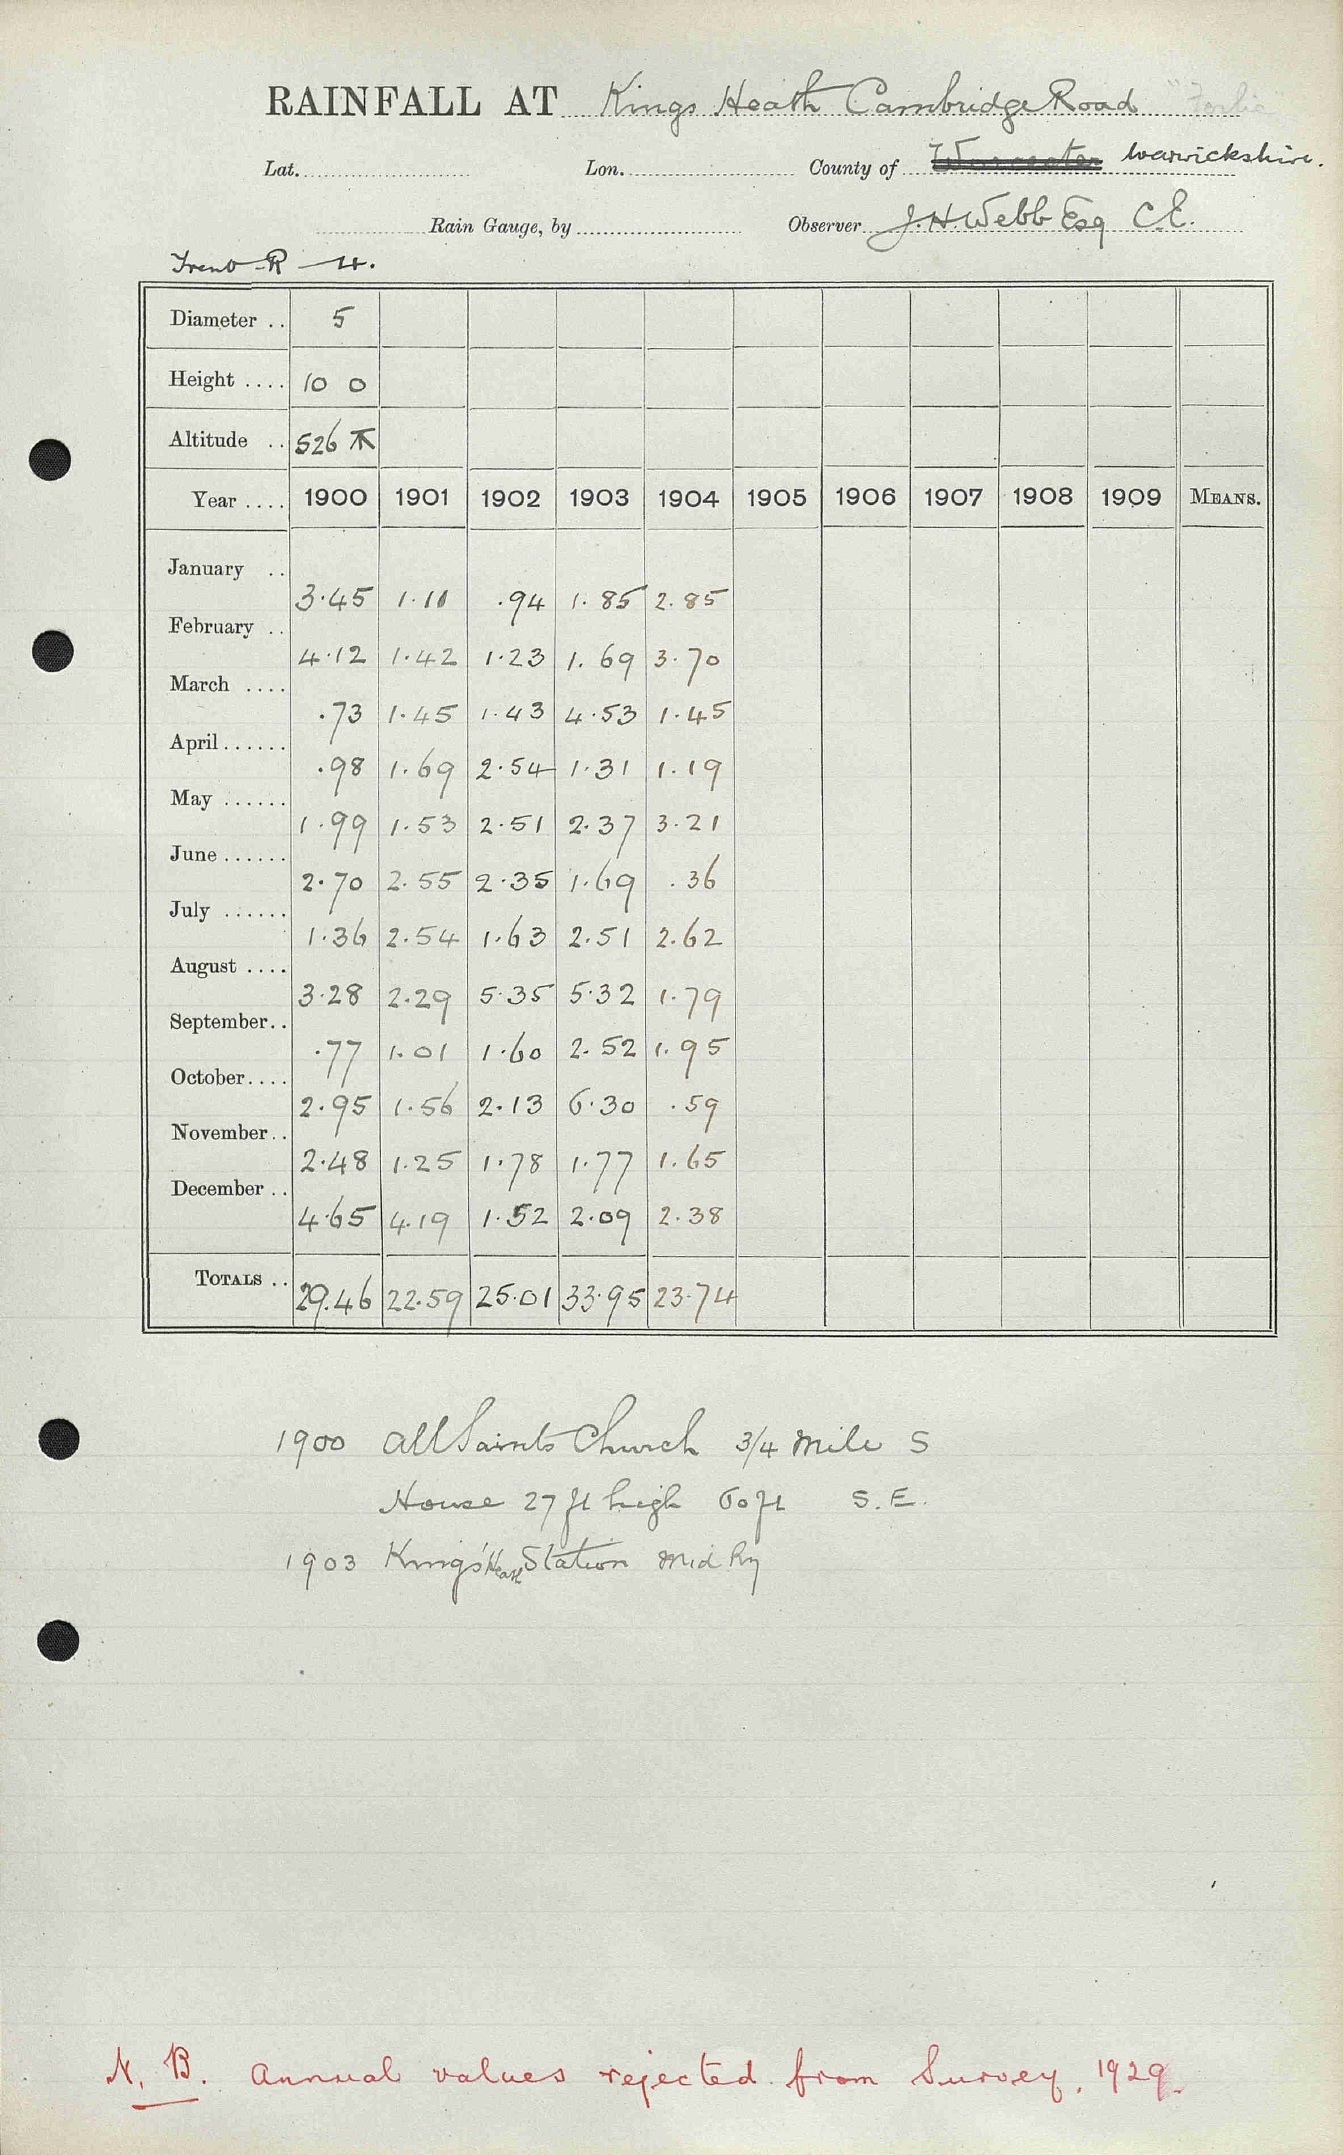 RAINFALL AT Kings Heath Cambridge Road
Lat. Lon. County of Worcester Warwickshire.
Rain Gauge, by Observer J. H. Webb Esq C.E.
Trent R 4.
Diameter .. 5
Height .... 10 0
Altitude .. 526
Year .... 1900 1901 1902 1903 1904 1905 1906 1907 1908 1909 MEANS.
January .. 3.45 1.11 .94 1.85 2.85
February .. 4.12 1.42 1.23 1.69 3.70
March .... .73 1.45 1.43 4.53 1.45
April ...... .98 1.69 2.54 1.31 1.19
May ...... 1.99 1.53 2.51 2.37 3.21
June ...... 2.70 2.55 2.35 1.69 .36
July ...... 1.36 2.54 1.63 2.51 2.62
August .... 3.28 2.29 5.35 5.32 1.79
September.. .77 1.01 1.60 2.52 1.95
October.... 2.95 1.56 2.13 6.30 .59
November.. 2.48 1.25 1.78 1.77 1.65
December .. 4.65 4.19 1.52 2.09 2.38
TOTALS .. 29.46 22.59 25.01 33.95 23.74
1900 All Saints Church 3/4 mile S
House 27 ft high 60 ft S.E.
1903 King's Heath Station Mid Ry
N.B. Annual values rejected from Survey, 1929.